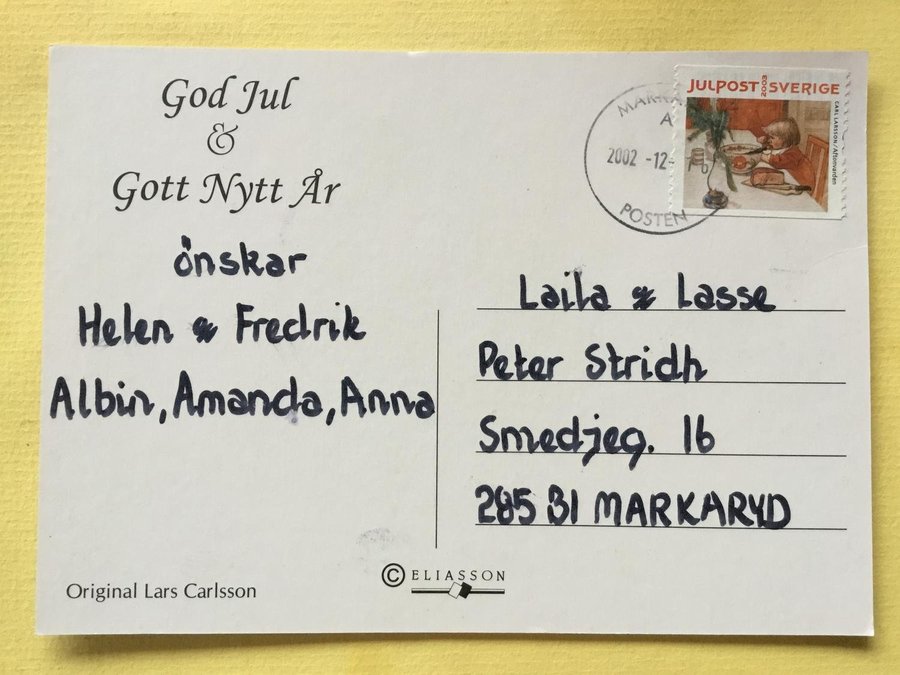 God Jul
&
Gott Nytt År
önskar
Helen & Fredrik
Albin, Amanda, Anna
Original Lars Carlsson
© ELIASSON
2002 -12-
POSTEN
JULPOST 2003 SVERIGE
CARL LARSSON/Aftonvarden
Laila & Lasse
Peter Stridh
Smedjeg. 16
285 31 MARKARYD